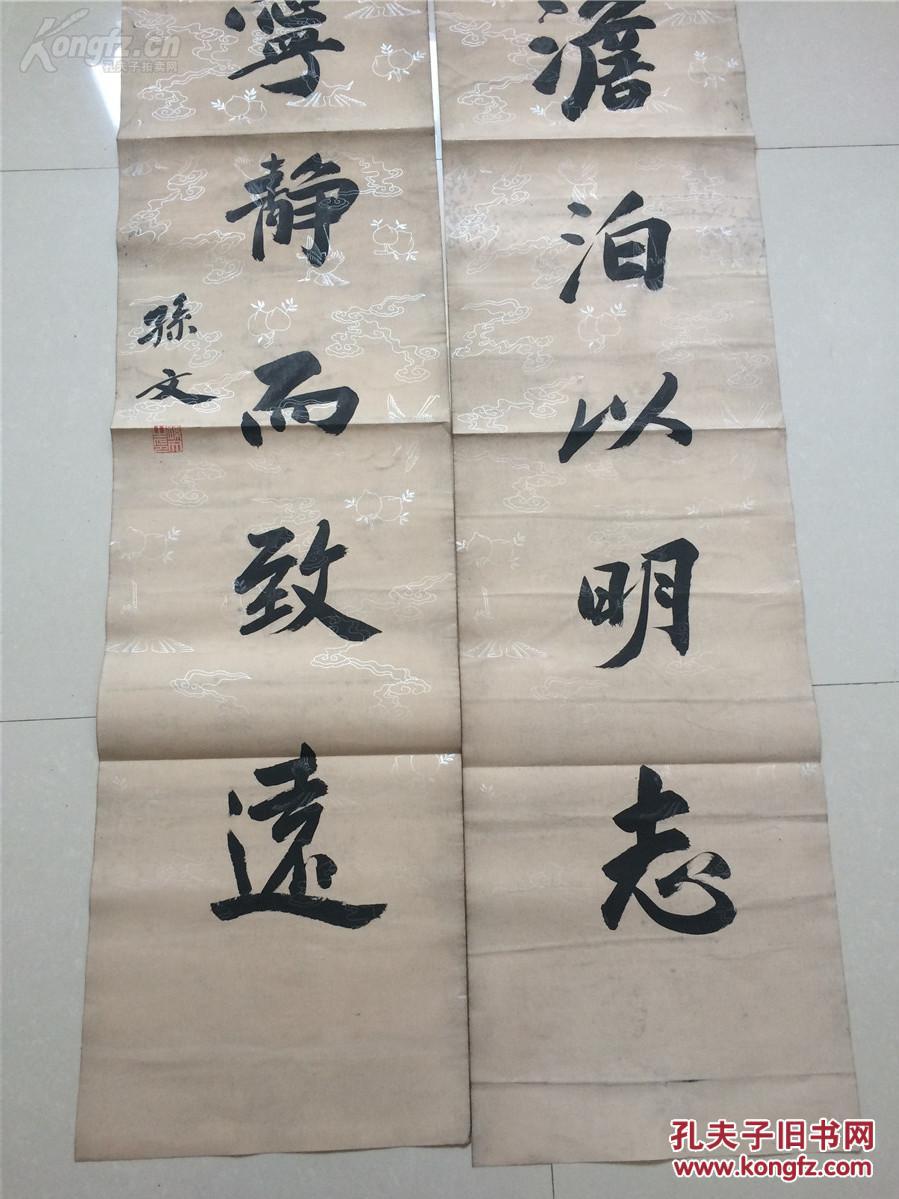 澹泊以明志
寧静而致遠
孫文
Kongfz.cn
孔夫子拍卖网
孔夫子旧书网
www.kongfz.com